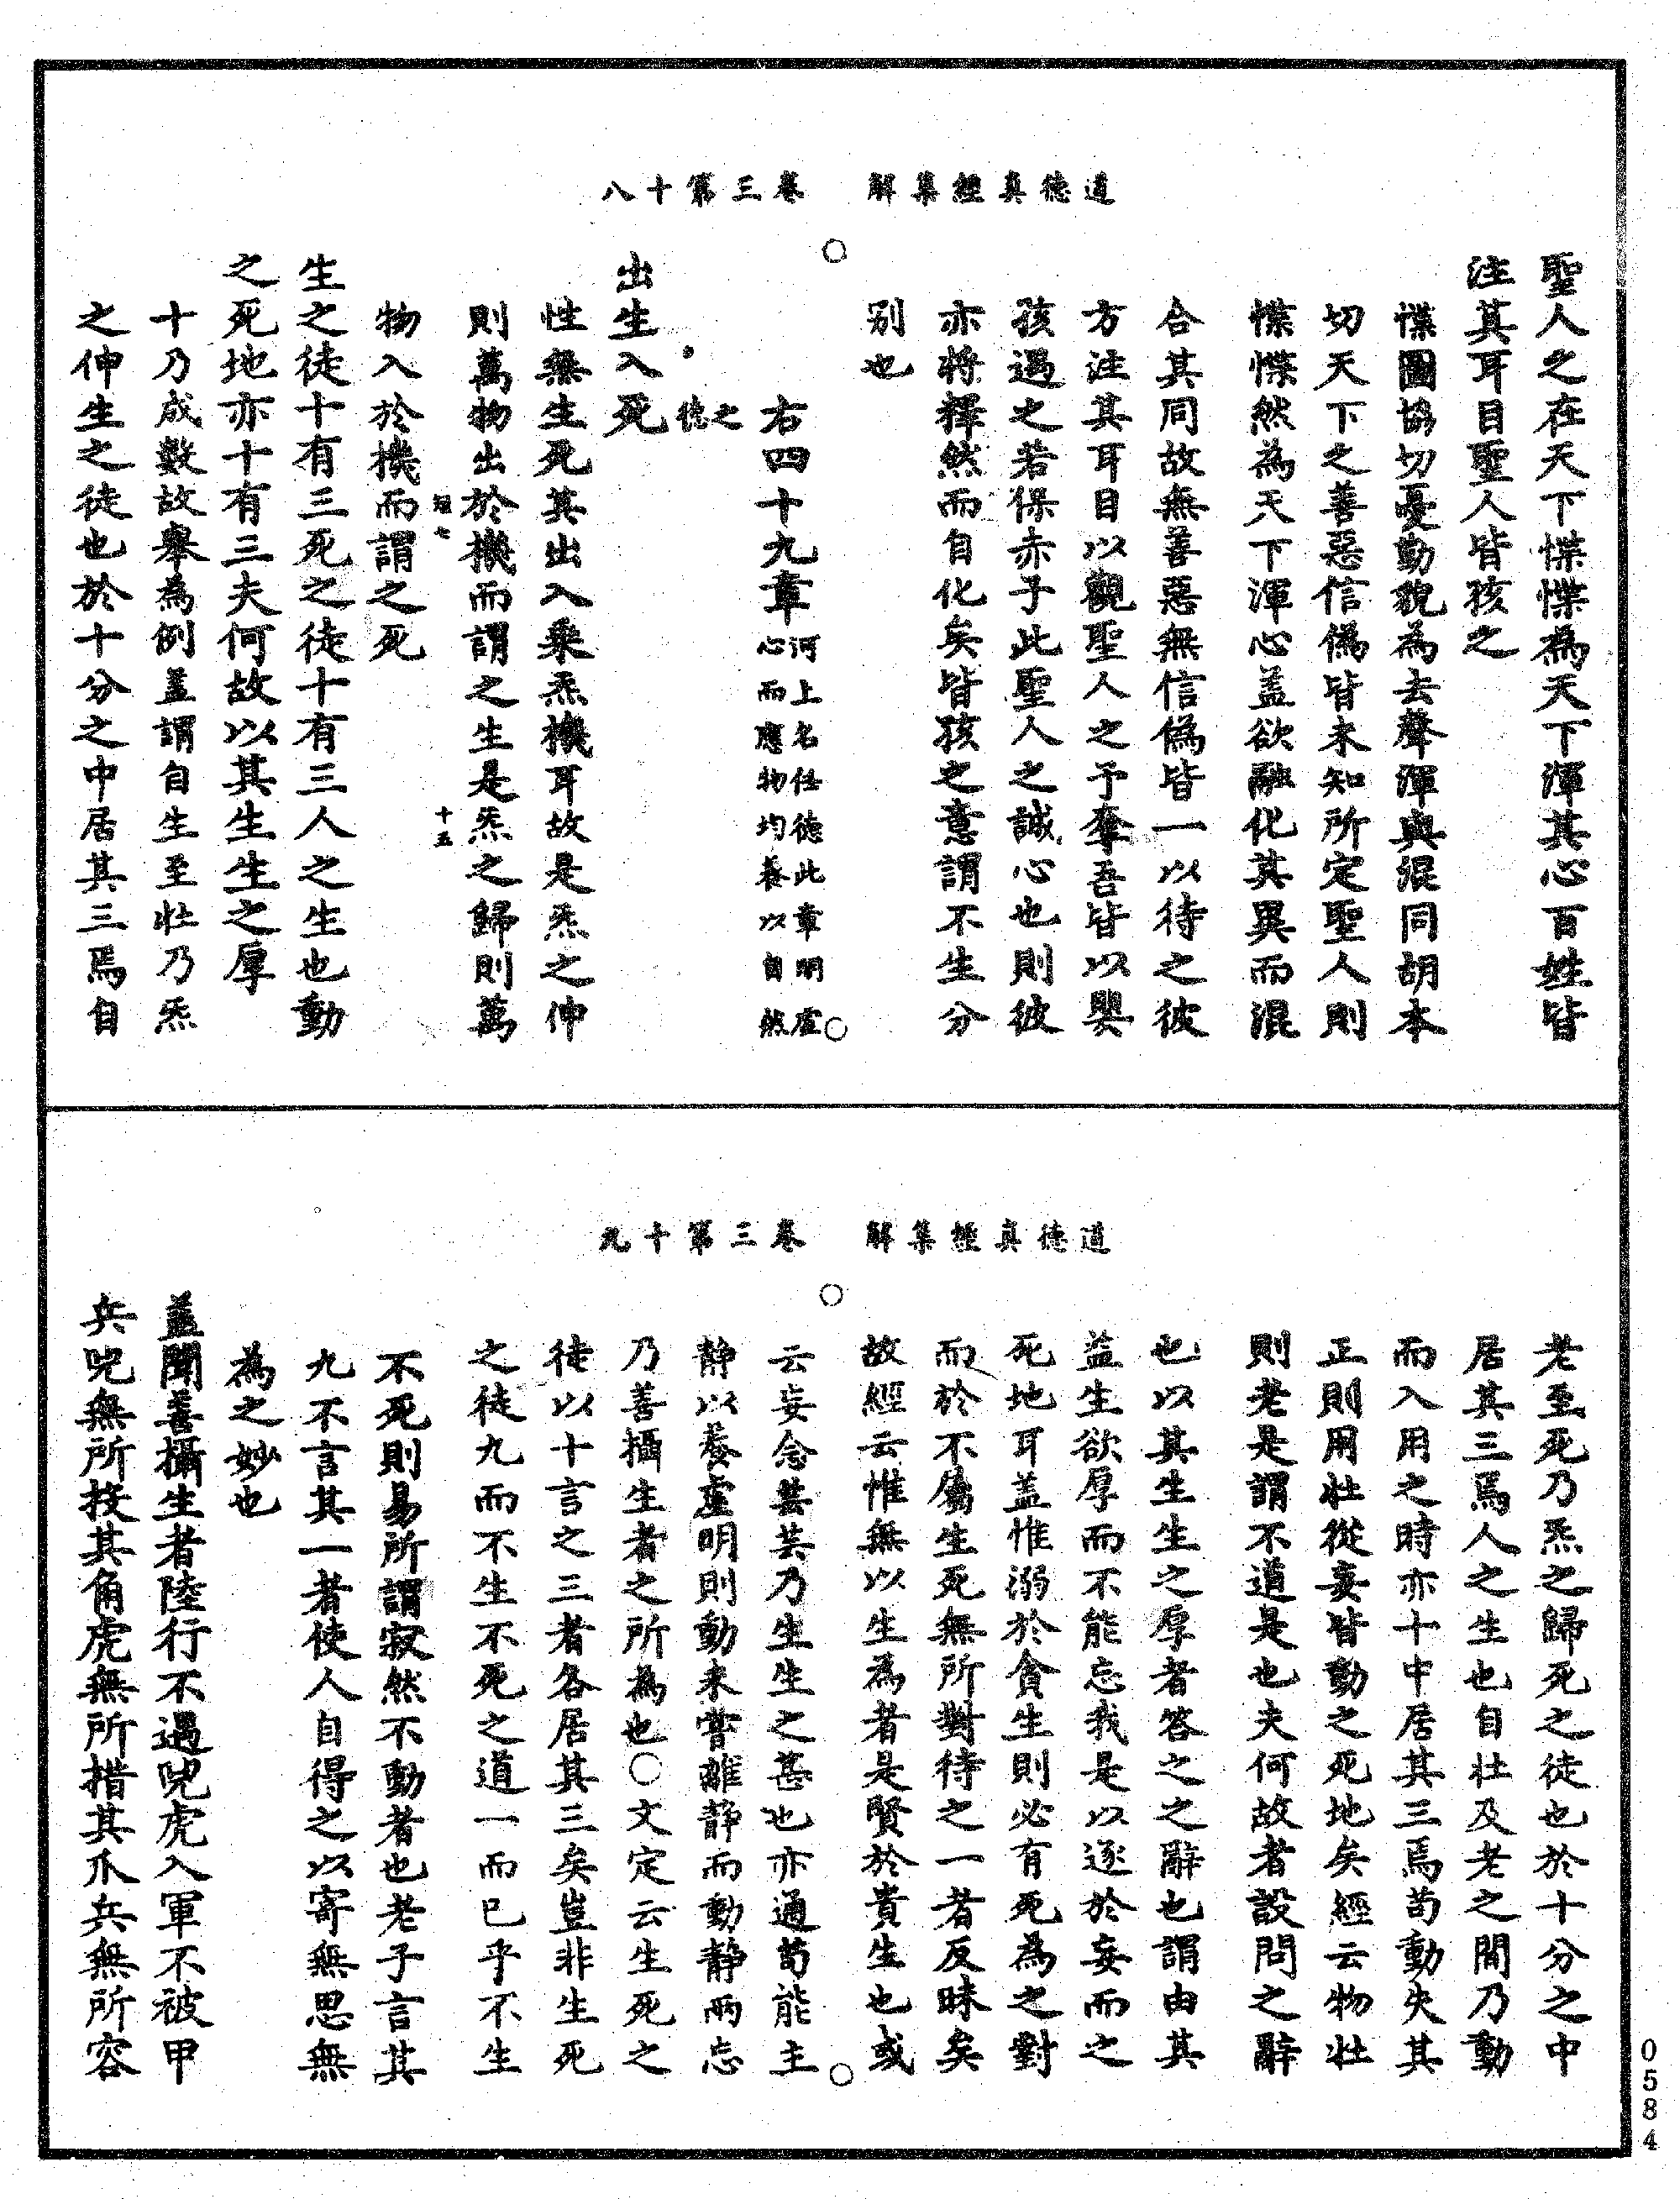 道德真經集解　卷三第十八
聖人之在天下惵惵為天下渾其心百姓皆
注其耳目聖人皆孩之
惵圖協切憂勤貌為去聲渾與混同胡本
切天下之善惡信偽皆未知所定聖人則
惵惵然為天下渾心盖欲融化其異而混
合其同故無善惡無信偽皆一以待之彼
方注其耳目以觀聖人之予奪吾皆以嬰
孩遇之若保赤子此聖人之誠心也則彼
亦將釋然而自化矣皆孩之意謂不生分
别也
右四十九章河上名任德此章明虛
心而應物均養以自然
之
德
出生入死
性無生死其出入乘炁機耳故是炁之伸
則萬物出於機而謂之生是炁之歸則萬
短七　十五
物入於機而謂之死
生之徒十有三死之徒十有三人之生也動
之死地亦十有三夫何故以其生生之厚
十乃成數故舉為例盖謂自生至壯乃炁
之伸生之徒也於十分之中居其三焉自
道德真經集解　卷三第十九
老至死乃炁之歸死之徒也於十分之中
居其三焉人之生也自壯及老之間乃動
而入用之時亦十中居其三焉苟動失其
正則用壯從妄皆動之死地矣經云物壯
則老是謂不道是也夫何故者設問之辭
也以其生生之厚者答之之辭也謂由其
益生欲厚而不能忘我是以逐於妄而之
死地耳盖惟溺於貪生則必有死為之對
而於不屬生死無所對待之一者反昧矣
故經云惟無以生為者是賢於貴生也或
云妄念芸芸乃生生之甚也亦通苟能主
静以養虛明則動未嘗離静而動静兩忘
乃善攝生者之所為也〇文定云生死之
徒以十言之三者各居其三矣豈非生死
之徒九而不生不死之道一而已乎不生
不死則易所謂寂然不動者也老子言其
九不言其一者使人自得之以寄無思無
為之妙也
盖聞善攝生者陸行不遇兕虎入軍不被甲
兵兕無所投其角虎無所措其爪兵無所容
0584